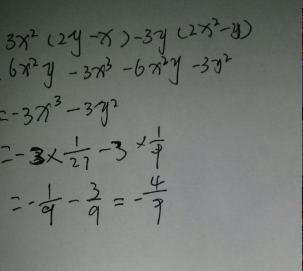 3x²(2y-x)-3y(2x²-y)
6x²y-3x³-6x²y-3y²
=-3x³-3y²
=-3×1/27-3×1/9
=-1/9-3/9=-4/9